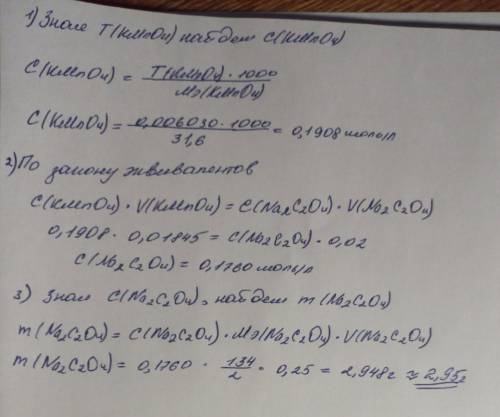 1) Зная T(KMnO4) найдем C(KMnO4)
C(KMnO4) = T(KMnO4) · 1000 / Mэ(KMnO4)
C(KMnO4) = 0,006030 · 1000 / 31,6 = 0,1908 моль/л
2) По закону эквивалентов
C(KMnO4) · V(KMnO4) = C(Na2C2O4) · V(Na2C2O4)
0,1908 · 0,01845 = C(Na2C2O4) · 0,02
C(Na2C2O4) = 0,1760 моль/л
3) Зная C(Na2C2O4), найдем m(Na2C2O4)
m(Na2C2O4) = C(Na2C2O4) · Mэ(Na2C2O4) · V(Na2C2O4)
m(Na2C2O4) = 0,1760 · 134 / 2 · 0,25 = 2,948г ≈ 2,95г